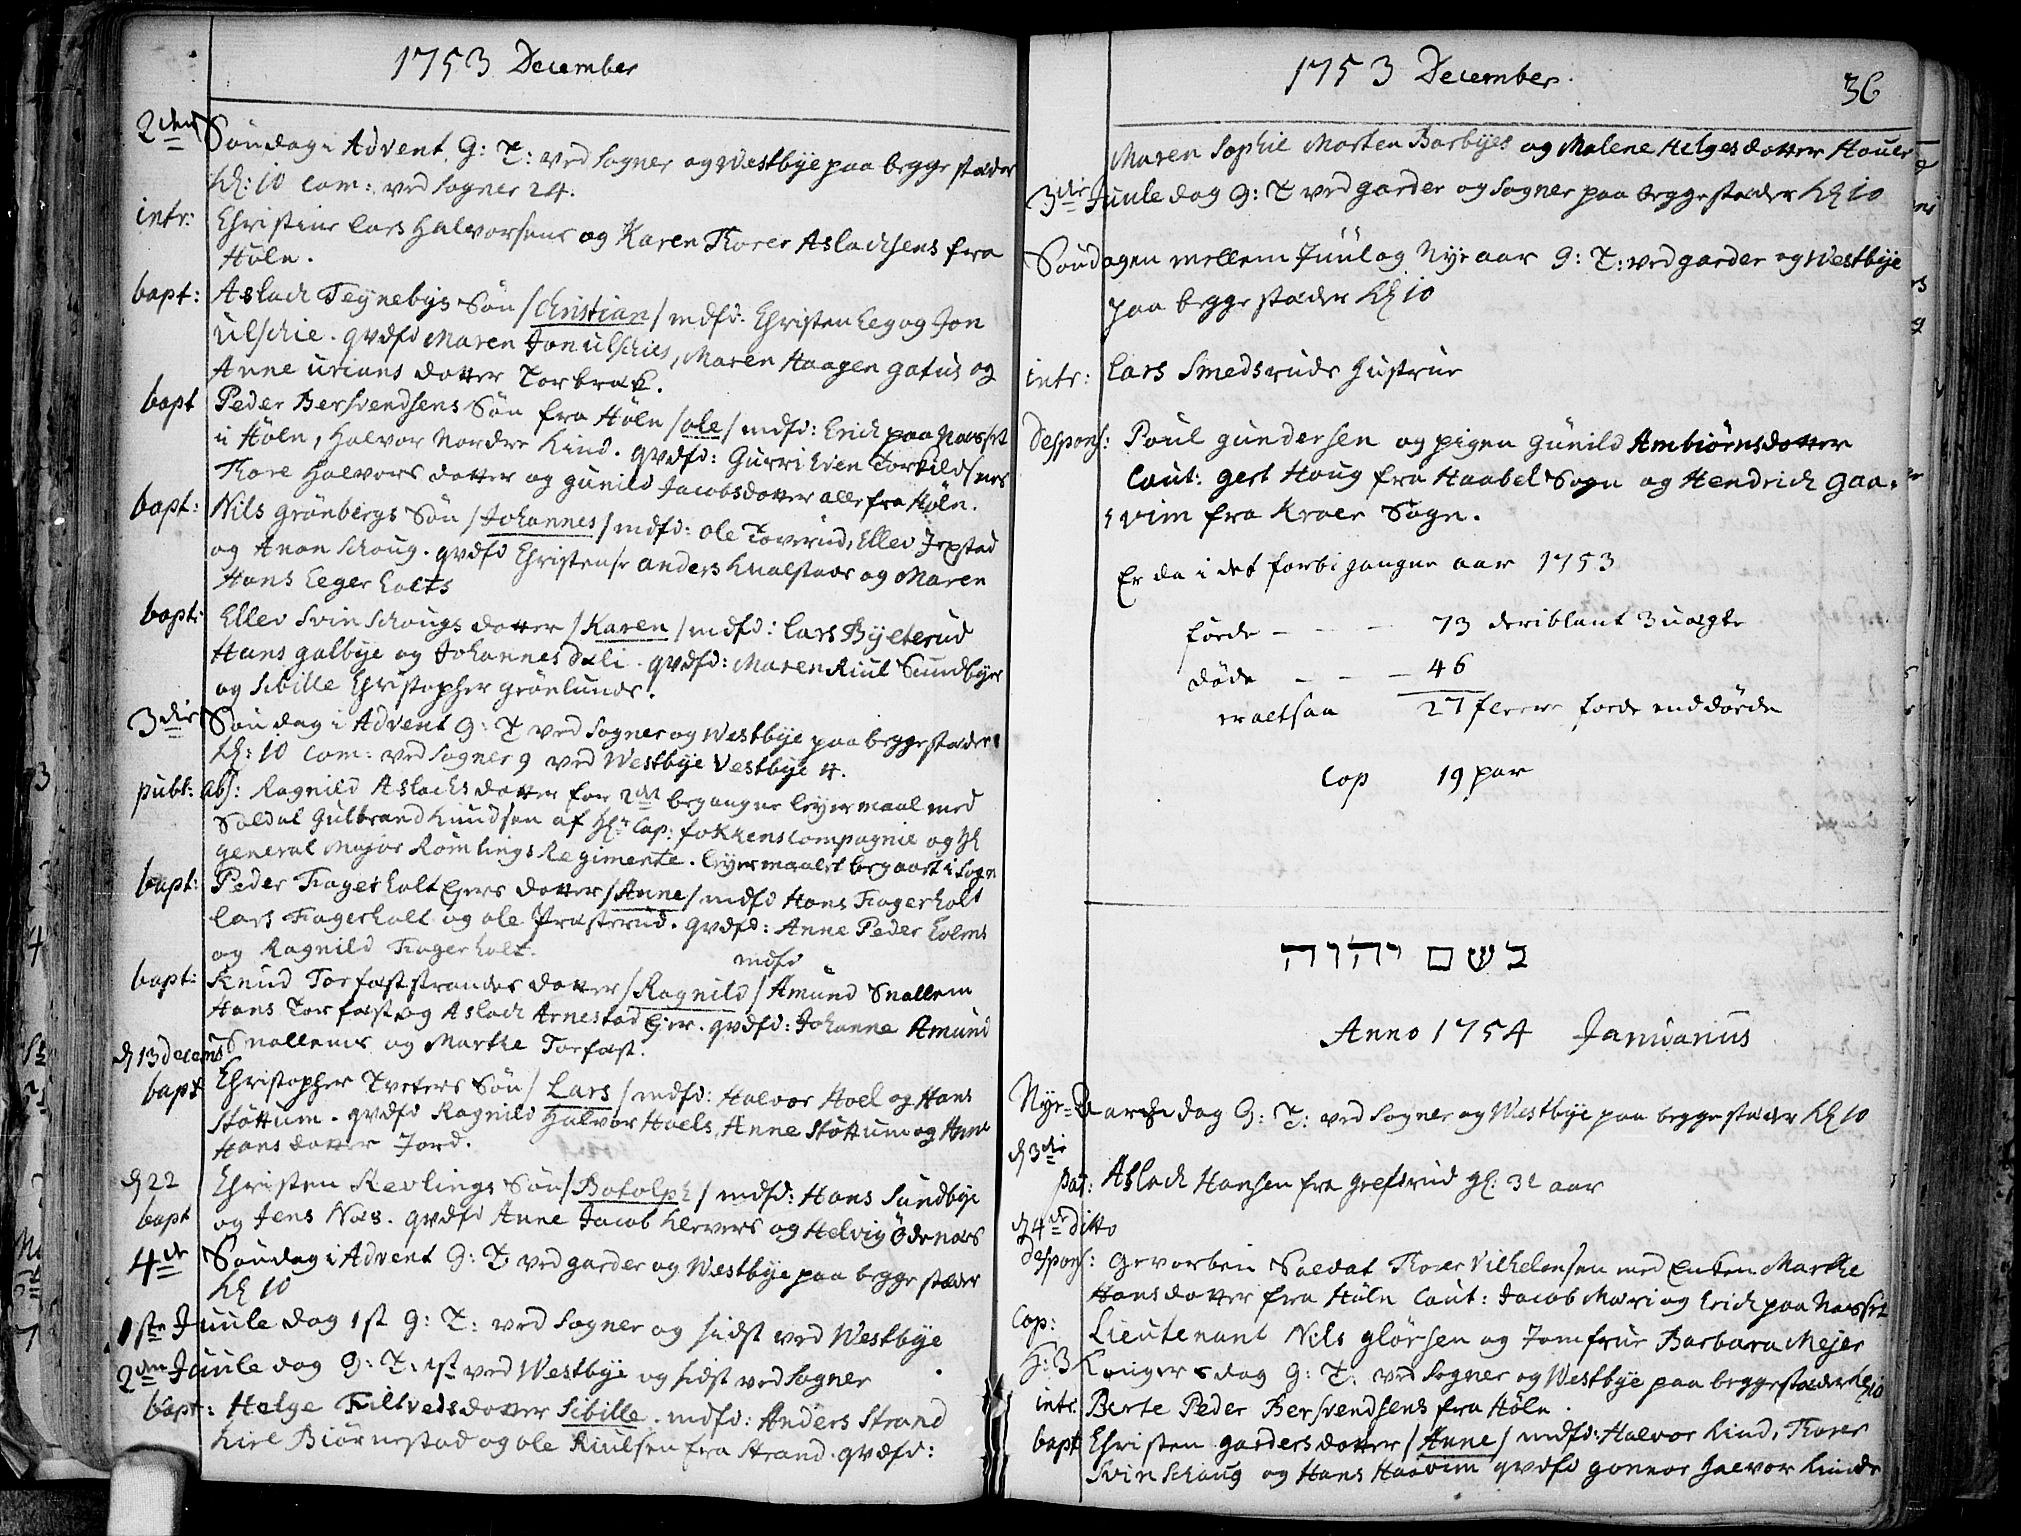 1753 December
2den Søndag i Advent. G: T: ved Sogner og Westbye paa begge stæder
Kl: 10 Com: ved Sogner 24.
intr: Christine Lars Halvorsens og Karen Thorer Aslachsens fra
Høln.
bapt: Aslach Teynebÿs Søn / Christian / mdfd. Christen Eeg og Jon
Ulschie. qvdfd Maren Jon Ulschies, Maren Haagen gatus og
Anne urians dotter Torbræk.
bapt Peder Bersvendsens Søn fra Høln / ole / mdfd: Erich paa Næsset
i Høln, Halvor Nordre Kind. qvdfd: Gurri Even Torkildsenes
Thore Halvors dotter og gunild Jacobsdotter alle fra Høln.
bapt: Nils grønbergs Søn / Johannes / mdfd: ole Toverud, Ellev Jepstad
og Anon Schoug. qvdfd Christense anders Kualstads og Maren
Hans Eeger Holts
bapt: Ellev Svinschougs dotter / Karen / mdfd: Lars Bÿlterud
Hans galbye og Johannes Dæli. qvdfd: Maren Riul Sundbyes
og Sibille Christopher grønlunds.
3die Søndag i Advent G: T ved Sogner og Westbye paa begge stæder
Kl: 10 Com: ved Sogner 9 ved Westbye Vestbye 4.
publ: abs: Ragnild Aslachsdotter for 2den begangne leyermaal med
Soldat Gulbrand Knudsen af Hr Cap: Fokkens Compagnie og Hr
General Major Rømlings Regimente. leyermaalet begaaet i Sogn
bapt: Peder Fagerholt Ejers dotter / Anne / mdfd Hans Fagerholt
Lars Fagerholt og ole Præsterud. qvdfd: Anne Peder Holms
og Ragnild Fagerholt.
mdfd
bapt: Knud Torfæststrandes dotter / Ragnild / Amund Snallem
Hans Torfæst og Aslach Arnestad Ejer. qvdfd: Johanne Amund
Snallems og Marthe Torfæst.
d 13 Decemb
bapt Christopher Tveters Søn / Lars / mdfd: Halvor Hoel og Hans
Støttum. qvdfd Ragnild Halvor Hoels, Anne Støttum og Anne
Hans dotter Jord.
d 22 Christen Revlings Søn / Botolph / mdfd: Hans Sundbye
bapt og Jens Næs. qvdfd Anne Jacob Klevers og Helvig Ødenæs
4de Søndag i Advent G: T ved garder og Westbye paa begge stæder
Kl 10
1ste Juule dag 1st G: T: ved Sogner og sidst ved Westbye
2den Juule dag G: T: 1st ved Westbye og sidst ved Sogner
bapt: Helge Filtvedsdotter Sibille. mdfd: Anders Strand
Kiel Biørnestad og ole Riulsen fra Strand. qvdfd:
1753 December.
36
Maren Sophie Morten Barbyes og Malene Helgesdotter Houer
3die Juule dag G: T ved garder og Sogner paa begge stæder Kl 10
Søndagen mellem Juul og Nye aar G: T: ved garder og Westbye
paa begge stæder Kl 10
intr: Lars Smedsruds Hustrue
Despons: Poul gundersen og pigen gunild Ambiørnsdotter
Caut: gert Houg fra Haabel Sogn og Hendrich gaa-
svim fra Kroer Sogn.
Er da i det forbigangne aar 1753
fødde - - - 73 deriblant 3 uægte
døde - - - 46
er altsaa 27 fleere fødde end dødde
Cop 19 par
בשם יהוה
Anno 1754 Januarius
Nye-aars dag G: T: ved Sogner og Westbye paa begge stæder Kl 10
d 3die
pas: Aslach Hansen fra grefsrud gl: 32 aar
d 4de ditto
Despons: Gevorben Soldat Thorer Vilhelmsen med Enken Marthe
Hansdotter fra Høln Caut: Jacob Mæri og Erich paa Næsset
Cop: Lieutenant Nils glørsen og Jomfrue Barbara Mejer
H: 3 Kongers dag G: T: ved Sogner og Westbye paa begge stæder Kl 10
intr. Berte Peder Bersvendsens fra Høln.
bapt Christen garders dotter / Anne / mdfd: Halvor Kind, Thorer
Svinschoug og Hans Haavim qvdfd gonnor Halvor Kinds